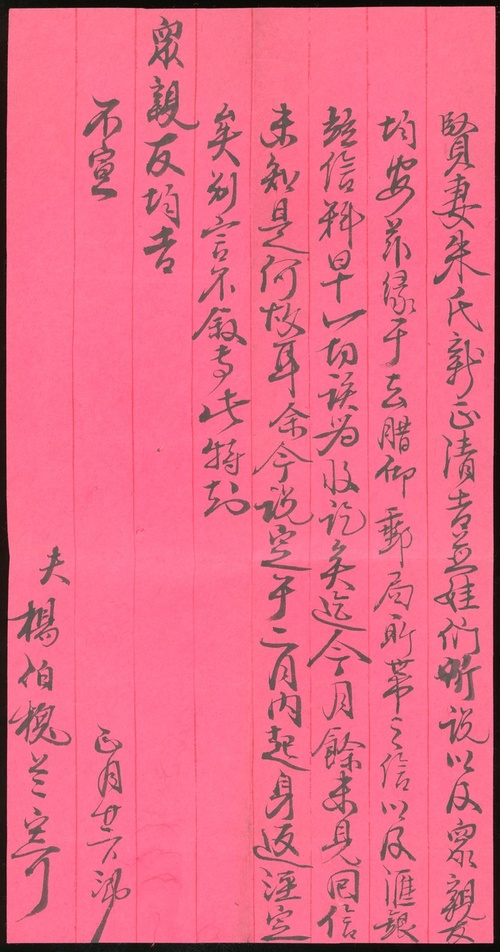 賢妻朱氏新正清吉並娃们所說以及眾親友
均安茲緣于去腊仰郵局所帶之信以及滙銀
信料早一切該為收訖矣迄今月餘未見回信
未知是何故耳余今說定于二月內起身返涇定
矣别言不叙专此特
眾親友均吉
不宣
正月廿六
夫楊伯槐